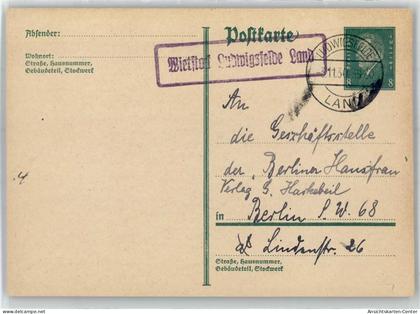 Absender:
Postkarte
Wohnort:
Straße, Hausnummer,
Gebäudeteil, Stockwerk
Wietstock Ludwigsfelde Land
LUDWIGSFELDE
LAND
8
An
die Geschäftsstelle
der Berliner Hausfrau
Verlag G. Hackebeil
in Berlin S. W. 68
Lindenstr. 26
Straße, Hausnummer,
Gebäudeteil, Stockwerk
Ansichtskarten-Center